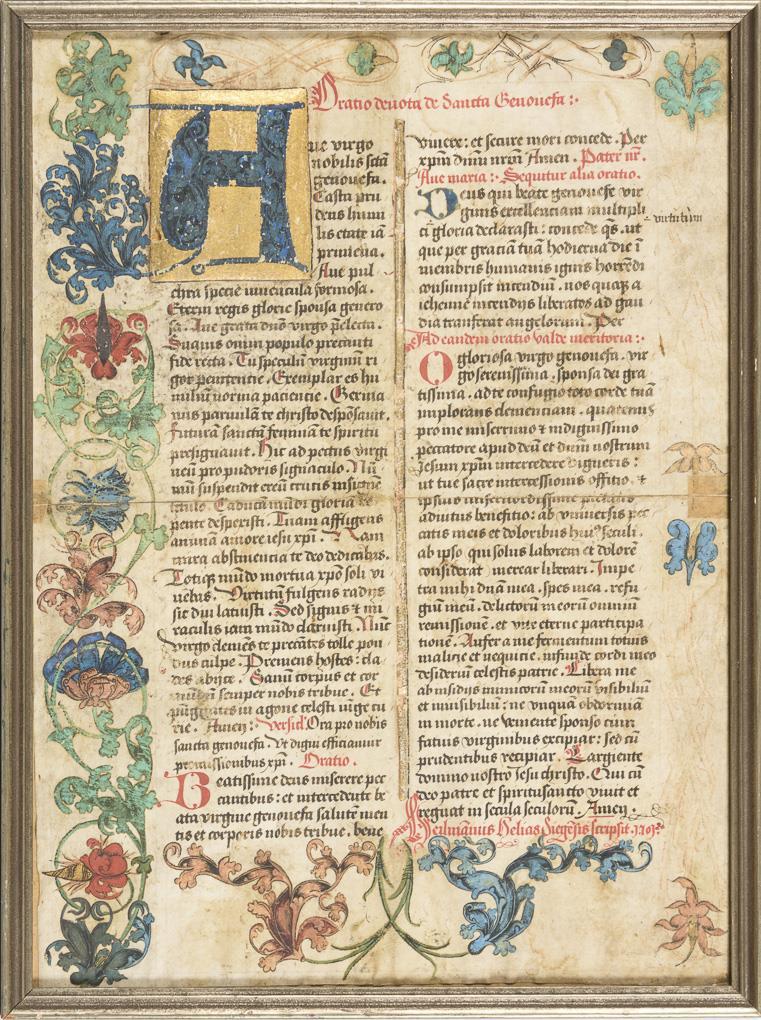 Oratio devota de Sancta Genouefa :·
A
ue virgo
nobilis sctā
genouefa .
Casta pru
dens humi
lis etate iā
primeua .
Aue pul
chra specie iuuencula formosa .
Eterni regis glorie sponsa genero
sa . Aue grata deo virgo p̄electa .
Suauis omni populo precinti
fide recta . Tu speculū virginū ri
gor penitentie . Exemplar es hu
milium norma paciencie . Germa
nus paruulam te christo despōsauit .
Futurā sanctū feminā te spiritu
presignauit . Hic ad pectus virgi
neū pro pudoris signaculo . Nū
mū suspendit ereū crucis insigne
Caducā mūdi gloriā
pente despexisti . Tuam affligens
animā amore iesu xpī . Nam
mira abstinentia te deo dedicabas .
Totiqꝫ mūdo mortua xpō soli vi
uebas . Virtutū fulgens radijs
sic diu latuisti . Sed signis et mi
raculis iam mūdo claruisti . Nūc
virgo clemēs te precātes tolle pon
dus culpe . Premens hostes : cla
des abijce . Sanū corpus et cor
semper nobis tribue . Et
in agone celesti uige cu
rie . Amen : versicl' Ora pro nobis
sancta genouefa . Vt digni efficiamur
promissionibus xpī . Oratio .
Beatissime deus miserere pec
cantibus : et intercedente be
ata virgine genouefa salutē men
tis et corporis nobis tribue . bene
viuere : et secure mori concede . Per
xpm dnm nrm Amen . Pater nr̄ .
Aue maria :· Sequitur alia oratio .
Deus qui beate genouefe vir
ginis excellenciam multipli
virtutum
ci gloria declarasti : concede qs̄ . ut
que per graciā tuā hodierna die ī
membris humanis ignis horrēdi
consumpsit incendiū . nos quoqꝫ a
iehenne incendijs liberatos ad gau
dia transferat angelorum . Per
Ad eandem oratio valde meritoria :·
O gloriosa virgo genouefa . vir
go serenissima . sponsa dei gra
tissima . ad te confugio toto corde tuā
implorans clementiam . quatenus
pro me miserrimo et indignissimo
peccatore apud deū et dūm nostrum
Jesum xpm intercedere digneris :
ut tue sacre intercessionis officio . et
ipsius misericordissime pietatis
adiutus benefitio : ab vniuersis pec
catis meis et doloribus huiꝰ seculi .
ab ipso qui solus laborem et dolorē
considerat merear liberari . Impe
tra mihi dn̄a mea . spes mea . refu
giū meū . delictorū meorū omnium
remissionē . et vite eterne participa
tionē . Aufer a me fermentum totius
malicie et nequicie . infunde cordi meo
desideriū celestis patrie . Libera me
ab insidijs inimicorū meorū visibiliū
et inuisibiliū : ne vnquā obdormiam
in morte . ne veniente sponso cum
fatuis virginibus excipiar : sed cū
prudentibus recipiar . Largiente
domino nostro Jesu christo . Qui cū
deo patre et spiritusancto viuit et
regnat in secula seculorū . Amen .
Heilmānus Helias Siegēsis scripsit .